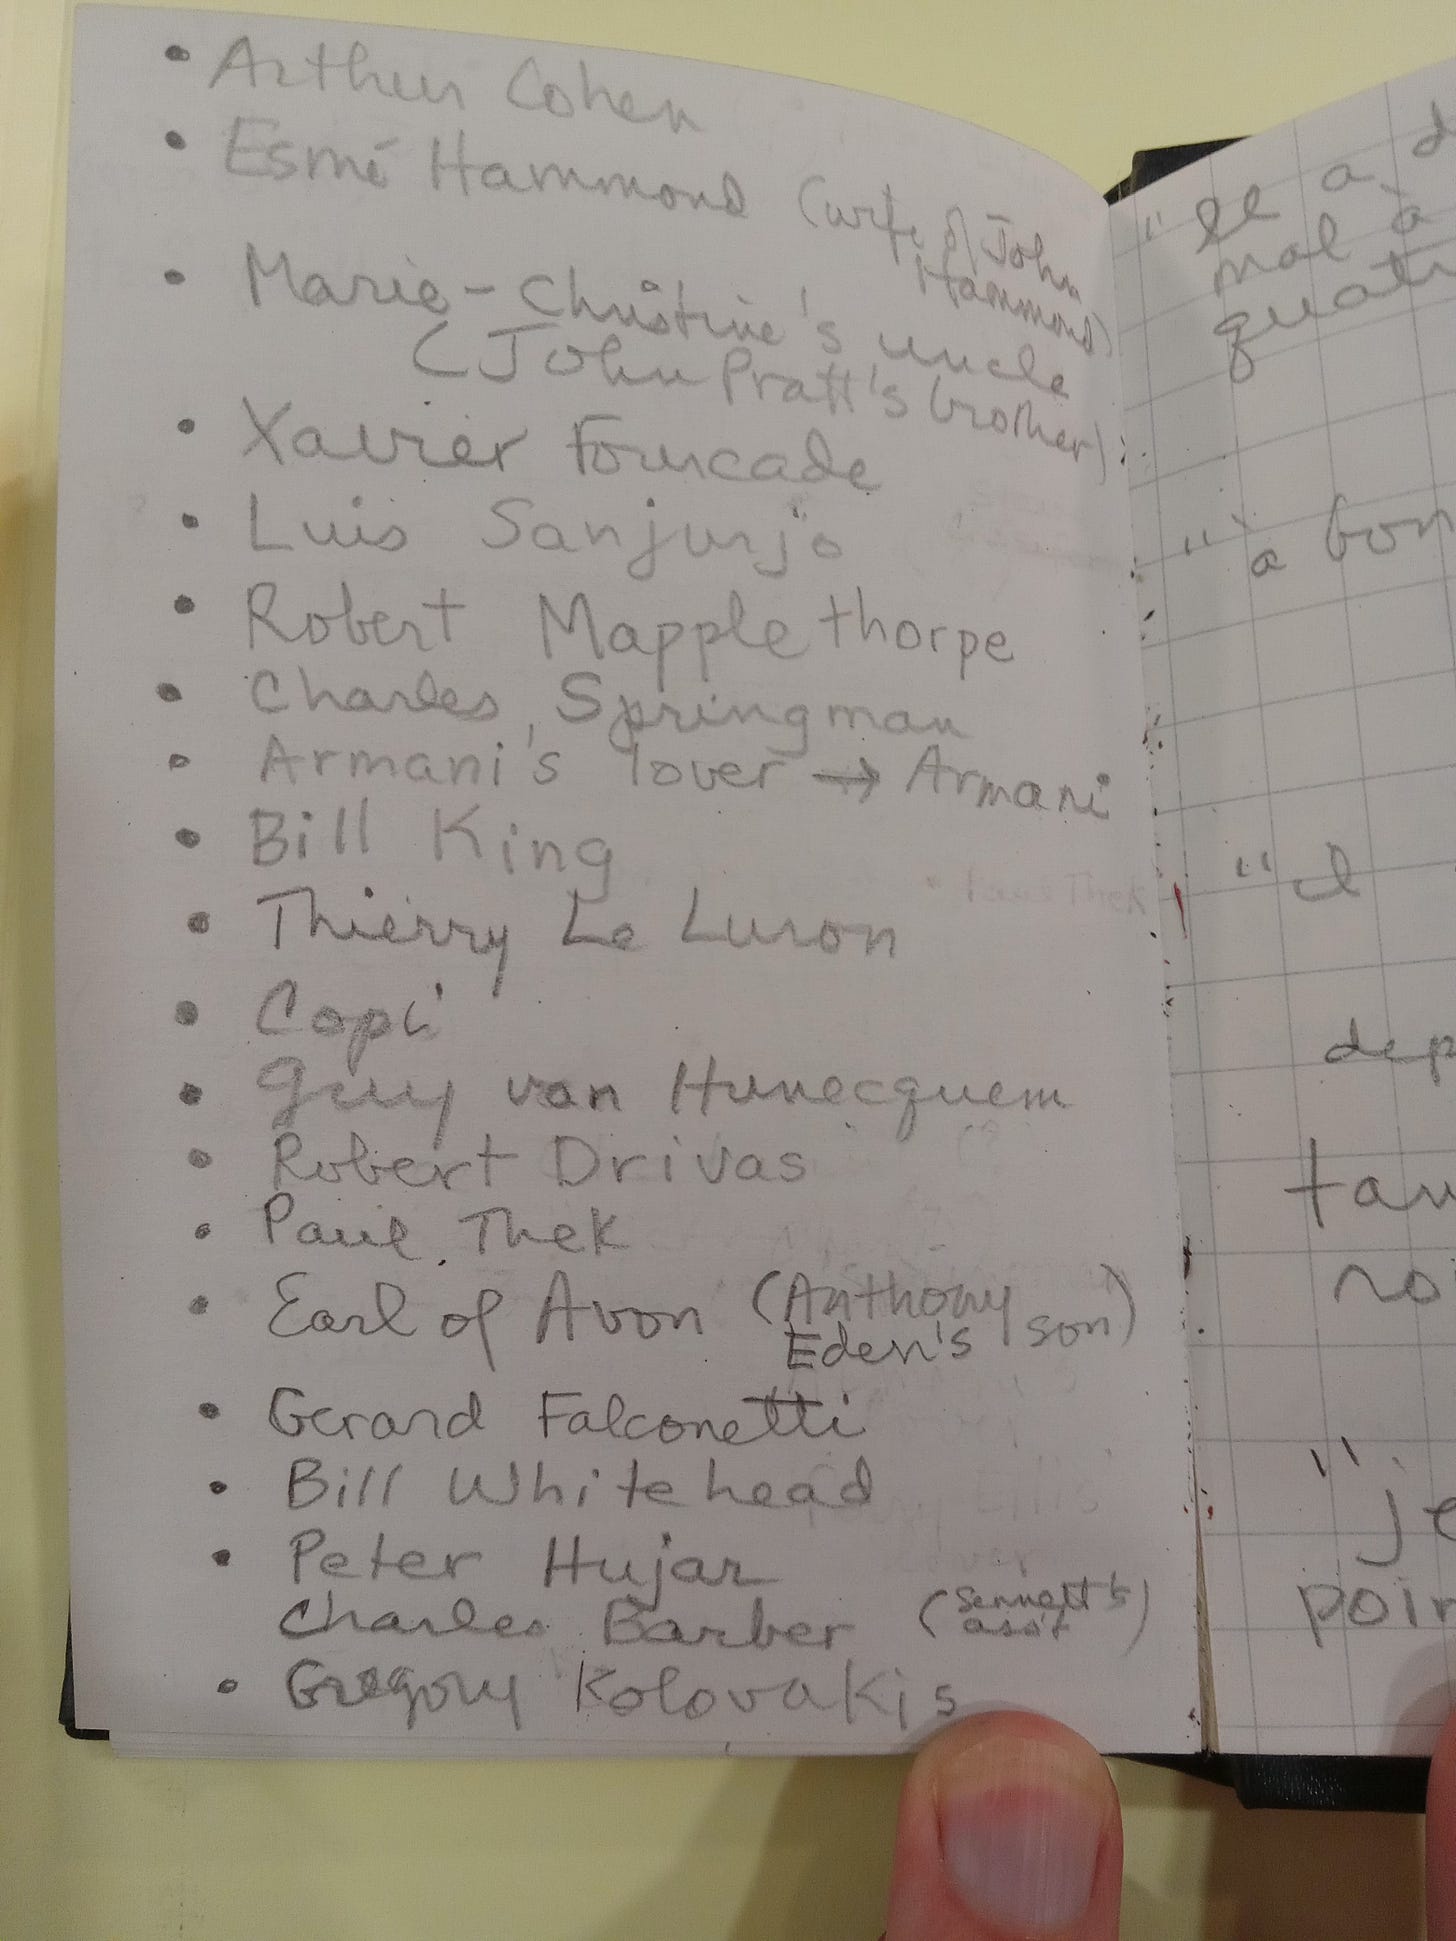 • Arthur Cohen
• Esmé Hammond (wife of John
Hammond)
• Marie-Christine's uncle
(John Pratt's brother)
• Xavier Fourcade
• Luis Sanjurjo
• Robert Mapplethorpe
• Charles Springman
• Armani's lover → Armani
• Bill King
• Paul Thek
• Thierry Le Luron
• Copi
• Guy van Hunecquem
• Robert Drivas
• Paul Thek
• Earl of Avon (Anthony
Eden's son)
• Gerard Falconetti
• Bill Whitehead
• Peter Hujar
Charles Barber (Sennett's
ass't)
• Gregory Kolovakis
"
mal à
"à bon
"
dep
"je